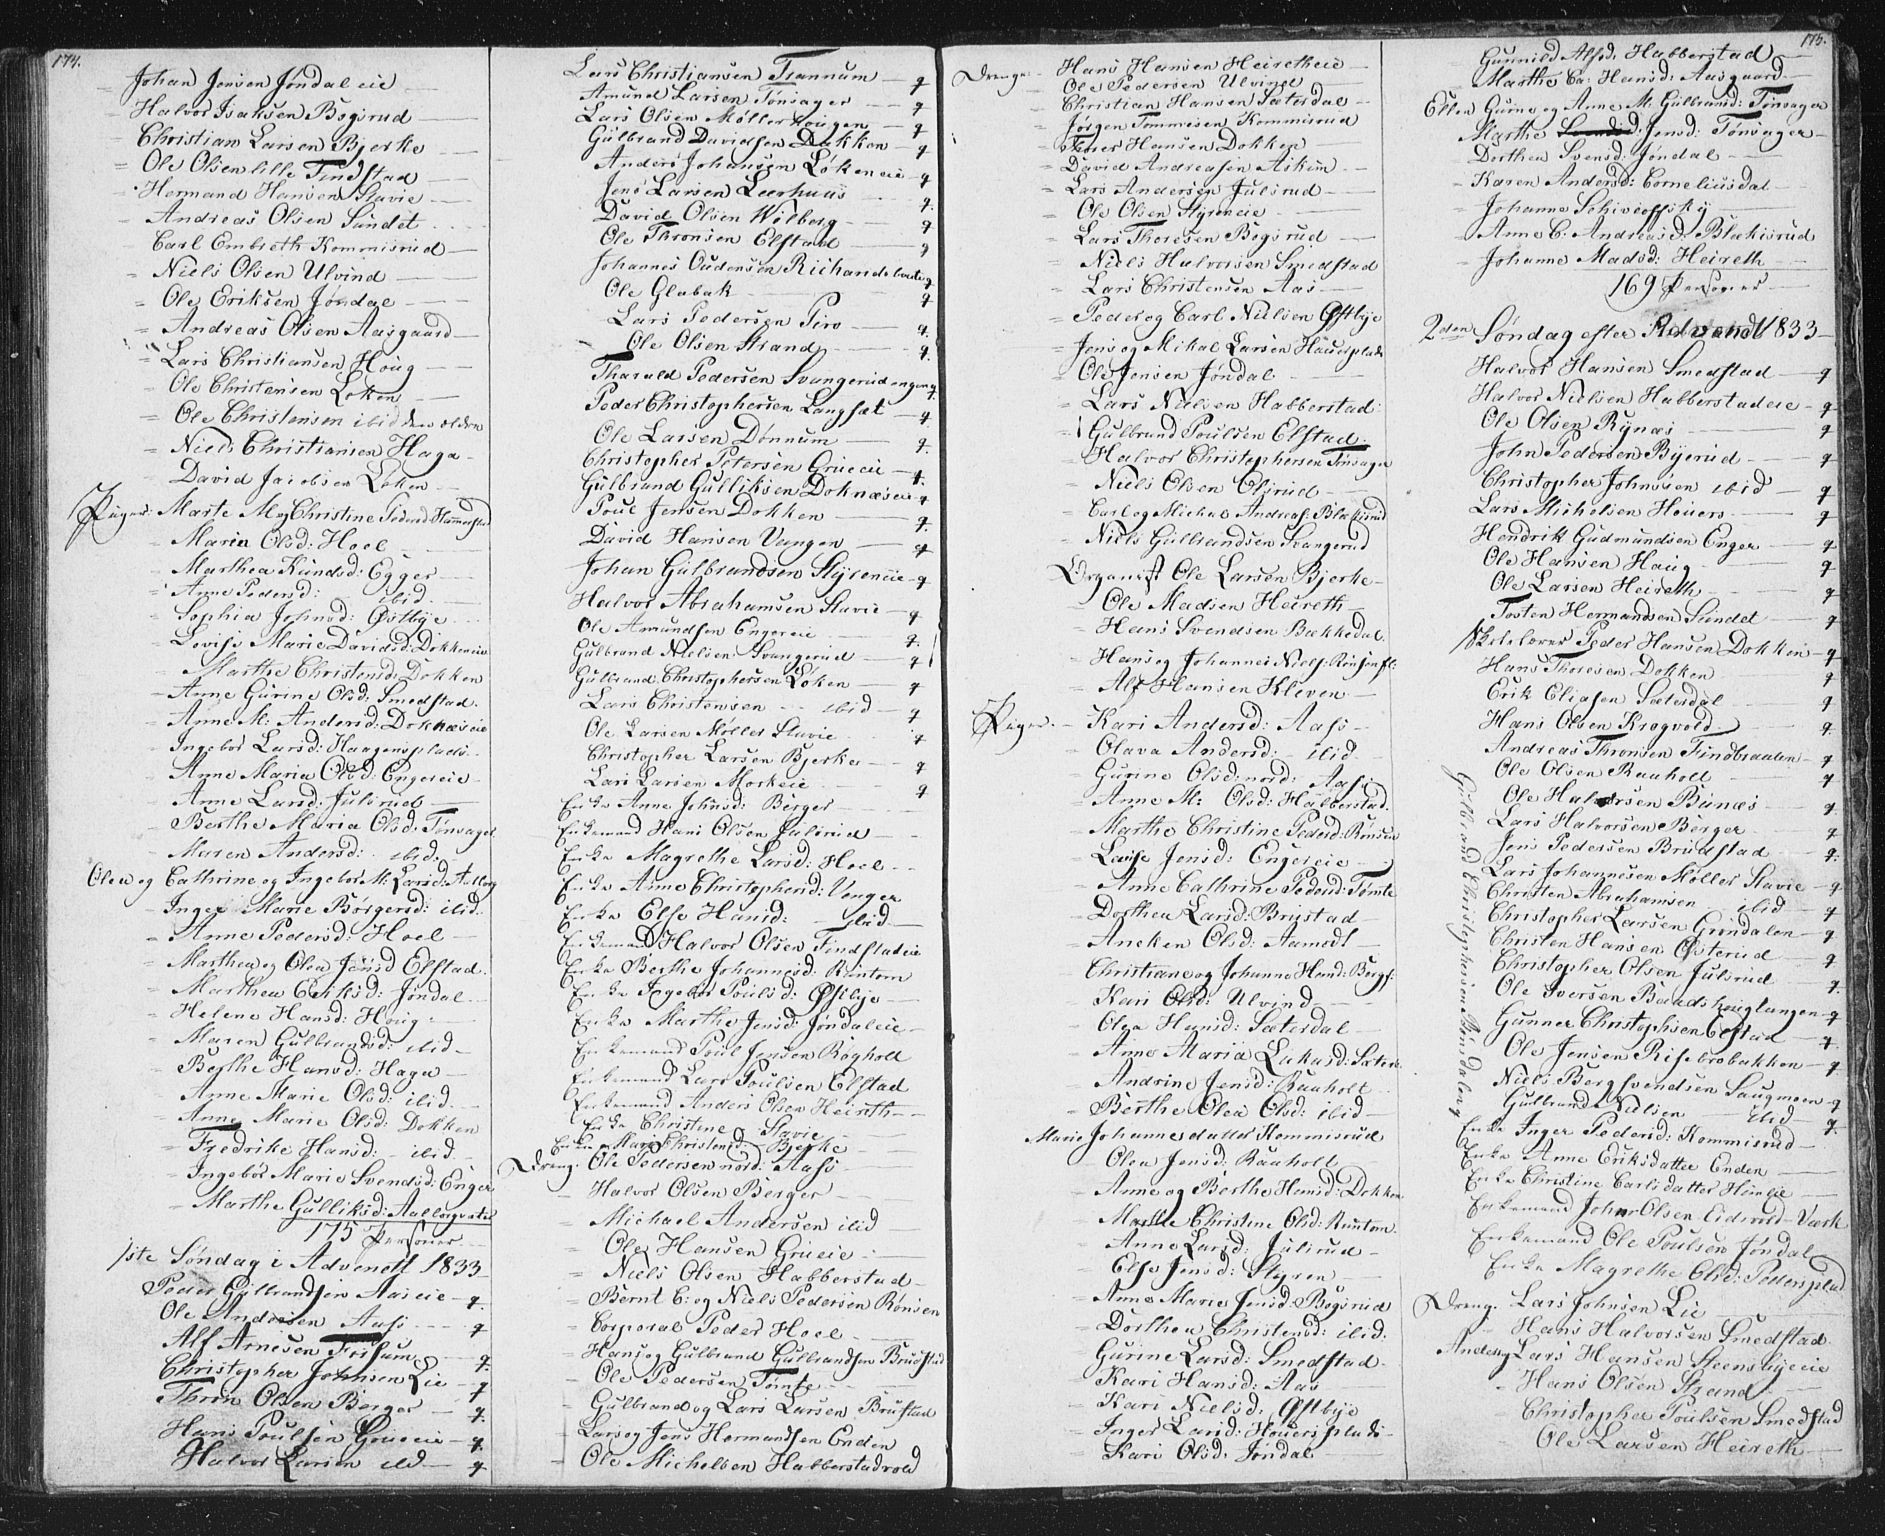 174.
Johan Jensen Jøndaleie
Halvor Isaksen Bogsrud
Christian Larsen Bjerke
Ole Olsen lille Findstad
Hermand Hansen Stavie
Andreas Olsen Sundet
Carl Embreth Kommisrud
Niels Olsen Ulvind
Ole Eriksen Jøndal
Andreas Olsen Aasgaard
Lars Christiansen Houg
Ole Christensen Løken
Ole Christensen ibid den eldre
Niels Christiansen Haga
David Jacobsen Løken
Piger. Marte M og Christine Pedersd:
Maria Olsd: Hoel
Marthea Knudsd: Egger
Anne Pedersd: ibid
Sophia Johnsd: Østbye
Lovise Marie Davidsd: Dokkeneie
Marthe Christensd: Dokken
Anne Gurine Olsd: Smedstad
Anne M: Andersd: Doknæseie
Ingebor Larsd: Haagensplads
Anne Maria Olsd: Engereie
Anne Larsd: Julsrud
Berthe Maria Olsd: Tønsager
Maren Andersd: ibid
Olea og Cathrine og Ingebor M: Larsd:
Inger Marie Børgersd: ibid
Anne Pedersd: Hoel
Marthea og Olea Jensd Elstad
Marthea Eriksd: Jøndal
Helene Hansd: Houg
Maren Gulbrandsd: ibid
Berthe Hansd: Haga
Anne Marie Olsd: ibid
Anne Marie Olsd: Dokken
Fredrike Hansd: ibid
Ingebor Marie Svendsd: Enger
Marthe Gulliksd:
175 Personer
1ste Søndag i Advendt 1833
Peder Gulbrandsen Aaseie q.
Ole Andersen Aass q
Alf Arnesen Frisum q.
Christopher Johnsen Lie q
Thron Olsen Berger q.
Hans Poulsen Grueeie q.
Halvor Larsen ibid q
Lars Christiansen Trannum q
Amund Larsen Tønsager q
Lars Olsen Møllerhougen q
Gulbrand Davidsen Dokken q
Anders Johansen Løkeneie q
Jens Larsen Leerhuus q.
David Olsen Wilberg q
Ole Thronsen Elstad q
Johannes Oudensen q
Ole Glabak q
Lars Pedersen Piro q.
Ole Olsen Strand q.
Tharald Pedersen Svangerudengen q
Peder Christophersen Langsæt q.
Ole Larsen Dønnum q.
Christopher Petersen Grueeie q.
Gulbrand Gulliksen Doknæseie q
Poul Jensen Dokken q.
David Hansen Vangen q
Johan Gulbrandsen Styreneie q
Halvor Abrahamsen Stavie q
Ole Amundsen Engereie q.
Gulbrand Nielsen Svangerud q
Gulbrand Christophersen Løken q
Lars Christensen ibid q
Ole Larsen Møller Stavie q
Christopher Larsen Bjerke q
Lars Larsen Morkeie q
Enke Anne Johnsd: Berger
Enkemand Hans Olsen Julsrud
Enke Magrethe Larsd: Hoel
Enke Anne Christophersd: Vengen
Enke Else Hansd: ibid
Enkemand Halvor Olsen Findstadeie
Enke Berthe Johannesd: Runtom
Enke Ingebor Poulsd: Østbye
Enke Marthe Jensd: Jøndaleie
Enkemand Poul Jensen Røgholt
Enkemand Lars Poulsen Elstad
Enkemand Anders Olsen Heireth
Enke Christine Stavie
Enke Mari Christensd: Bjerke
Dreng. Ole Pedersen nord: Aass
Halvor Olsen Berger
Michael Andersen ibid
Ole Hansen Grueeie
Niels Olsen Habberstad
Bernt C: og Niels Pedersen Rønsen
Corporal Peder Hoel
Hans og Gulbrand Gulbrandsen Brustad
Ole Pedersen Tømte
Gulbrand og Lars Larsen Brustad
Lars og Jens Hermandsen Enden
Ole Michelsen Habberstadvold
Drenge. Hans Hansen Heiretheie
Ole Pedersen Ulvind
Christian Hansen Sætersdal
Jørgen Tommesen Kommisrud
Peder Hansen Dokken
David Andreasen Askim
Lars Andersen Julsrud
Ole Olsen Styreneie
Lars Thoresen Bogsrud
Niels Halvorsen Smedstad
Lars Christensen Aas
Peder og Carl Nielsen Østbye
Jens og Mikal Larsen Houerspladr
Ole Jensen Jøndal
Lars Nielsen Habberstad
Gulbrand Poulsen Elstad
Halvor Christophersen Tønsager
Niels Olsen Olsrud
Carl og Michal Andreas: Blækisrud
Niels Gulbrandsen Svangerud
Organist Ole Larsen Bjerke
Ole Madsen Heireth
Hans Svendsen Bækkedal
Hans og Johannes Niels:
Alf Hansen Kleven
Piger. Kari Andersd: Aass
Olava Andersd: ibid
Gurine Olsd: nord: Aass
Anne M: Olsd: Habberstad
Marthe Christine Pedersd: Rønsen
Lovise Jensd: Engereie
Anne Cathrine Pedersd: Tømte
Dorthea Larsd: Brustad
Aneken Olsd: Aamodt
Christiane og Johanne Hansd: Bergs:
Kari Olsd: Ulvind
Olea Hansd: Sætersdal
Anne Maria Lukasd: Sætersd
Andrine Jensd: Rauholt
Berthe Olea Olsd: ibid
Marie Johannesdatter Kommisrud
Olea Jensd: Rauholt
Anne og Berthe Hansd: Dokken
Marthe Christine Olsd: Runtom
Anne Larsd: Julsrud
Else Jensd: Styren
Anne Marie Jensd: Bogsrud
Dorthea Christensd: ibid
Gurine Larsd: Smedstad
Kari Hansd: Aas
Kari Nielsd: Østbye
Inger Larsd: Houerspladr
Kari Olsd. Jøndal
175.
Gunnild Alfsd: Habberstad
Marthe Ca: Hansd: Aasgaard
Ellen Gurine og Anne M: Gulbrandsd: Tønsager
Marthe Jensd: Tønsager
Dorthea Svensd: Jøndal
Karen Andersd: Corneliusdal
Johanne Schiveoffsky
Anne C: Andreasd: Blækisrud
Johanne Madsd: Heireth
169 Personer
2den Søndag efter Advendt 1833
Halvor Hansen Smedstad q
Halvor Nielsen Habberstadeie q
Ole Olsen Rynæs q
John Pedersen Byerud q
Christopher Johnssen ibid q
Lars Michelsen Houers q
Hendrik Gudmundsen Enger q
Ole Hansen Haug q
Ole Larsen Heireth q
Tosten Hermandsen Sundet q
Skolelærer Peder Hansen Dokken q
Hans Thoresen Dokken q
Erik Eliasen Sætersdal q
Hans Olsen Krogvold q.
Andreas Thronsen Findbraaten q
Ole Olsen Rauholt q
Ole Halvorsen Bunæs q.
Lars Halvorsen Berger q
Jens Pedersen Brustad q.
Lars Johannesen Møller Stavie q
Christen Abrahamsen ibid q
Christopher Larsen Grøndalen q
Christen Hansen Østerud q
Christopher Olsen Julsrud q.
Ole Iversen Baadshougtangen q
Gunner Christophsen Elstad q.
Ole Jensen Risebrobakken q
Niels Bergsvendsen Saugmoen q
Gulbrand Nielsen ibid q.
Gulbrand Christophersen
Enke Inger Pedersd: Kommisrud
Enke Anne Eriksdatter Enden
Enke Christine Carlsdatter Himlie
Enkemand Johan Olsen Eidsvold-Værk
Enkemand Ole Poulsen Jøndal
Enke Magrethe Olsd:
Dreng. Lars Johnsen Lie
Hans Halvorsen Smedstad
Anders og Lars Hansen Steensbyeeie
Hans Olsen Strand
Christopher Poulsen Smedstad
Ole Larsen Heireth